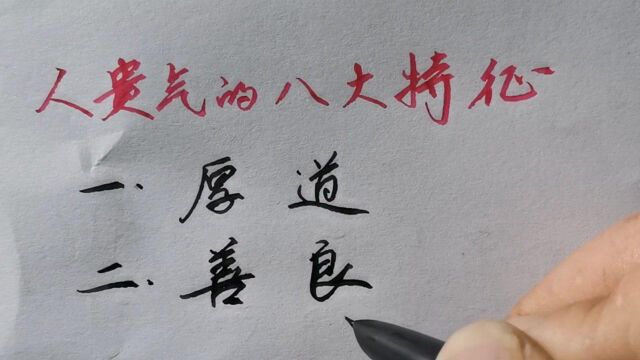 人贵气的八大特征
一.厚道
二.善良